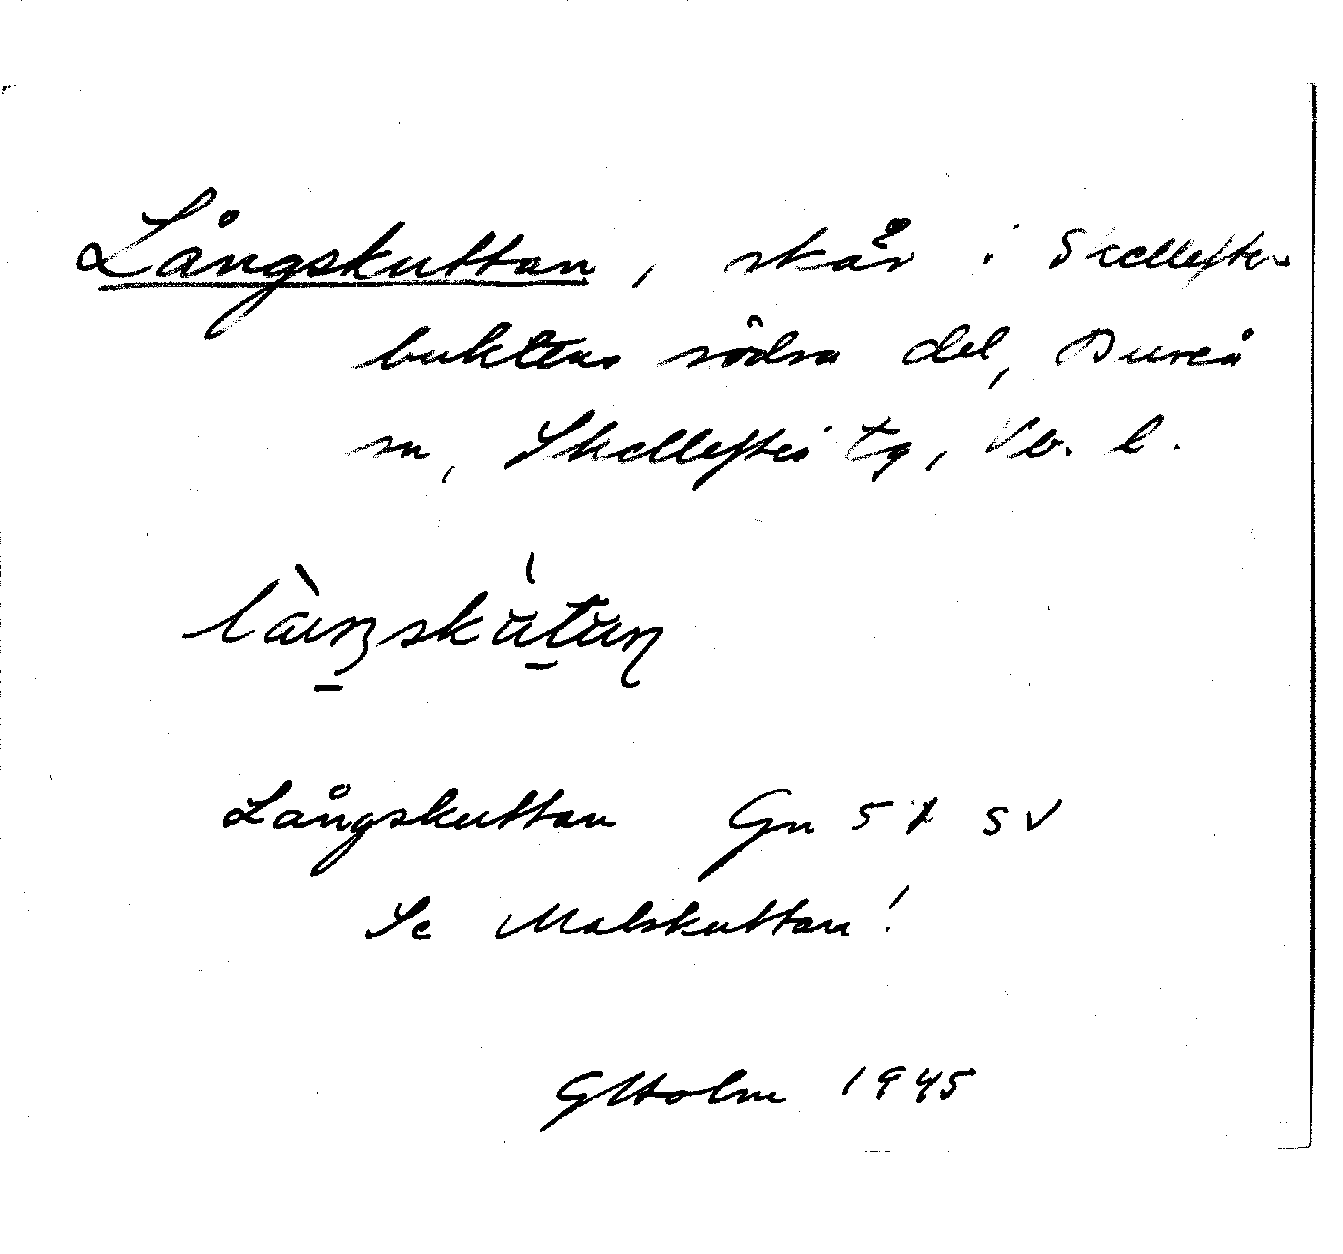 Långskuttan, skär i Skellefte-
buktens södra del, Bureå
sn, Skellefteå tg, Vb. l.
Långskuttan Gn 51 SV
Se Malskuttan!
GHolm 1945